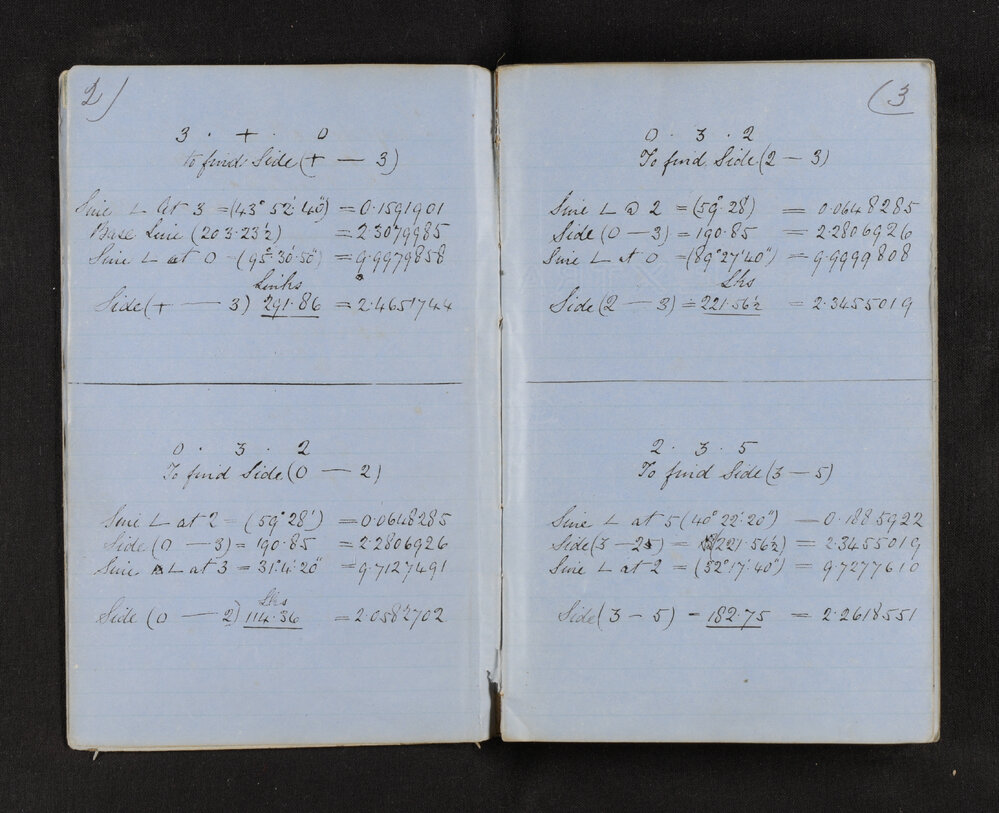 2)
3 . + . 0
to find Side (+ — 3)
Sine ∟ at 3 = (43° 52' 40") = 0.1591901
Base Line (203.23½) = 2.3079985
Sine ∟ at 0 = (95° 30' 50") = 9.9979858
Links
Side (+ — 3) 291.86 = 2.4651744
0 . 3 . 2
To find Side (0 — 2)
Sine ∟ at 2 = (59° 28') = 0.0648285
Side (0 — 3) = 190.85 = 2.2806926
Sine ∟ at 3 = 31° 4' 20" = 9.7127491
Lks
Side (0 — 2) 114.36 = 2.0582702
(3
0 . 3 . 2
To find Side (2 — 3)
Sine ∟ @ 2 = (59° 28') = 0.0648285
Side (0 — 3) = 190.85 = 2.2806926
Sine ∟ at 0 = (89° 27' 40") = 9.9999808
Lks
Side (2 — 3) = 221.56½ = 2.3455019
2 . 3 . 5
To find Side (3 — 5)
Sine ∟ at 5 (40° 22' 20") — 0.1885922
Side (3 — 2) = (221.56½) = 2.3455019
Sine ∟ at 2 = (32° 17' 40") = 9.7277610
Side (3 — 5) — 182.75 = 2.2618551